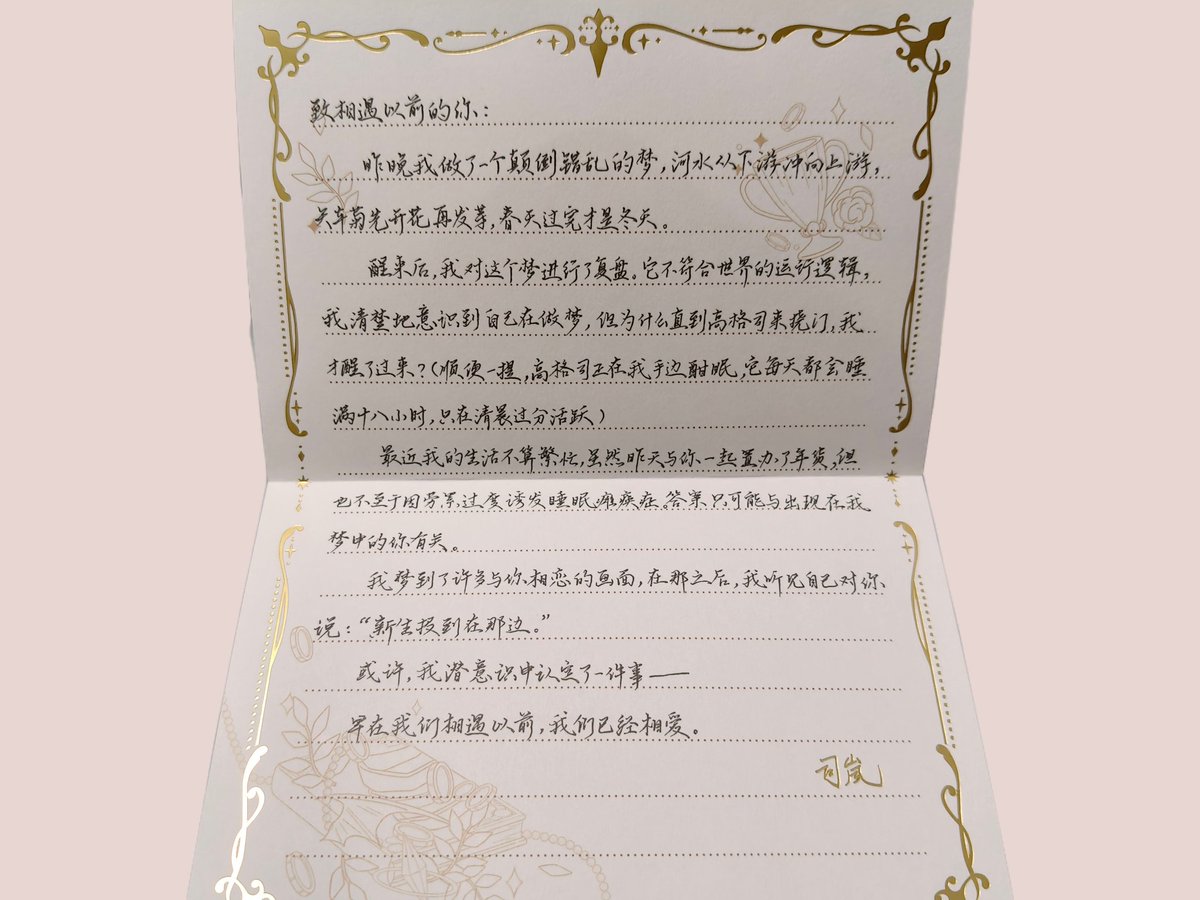 致相遇以前的你：
昨晚我做了一个颠倒错乱的梦，河水从下游冲向上游，
矢车菊先开花再发芽，春天过完才是冬天。
醒来后，我对这个梦进行了复盘。它不符合世界的运行逻辑，
我清楚地意识到自己在做梦，但为什么直到高格司来挠门，我
才醒了过来？（顺便一提，高格司正在我手边酣眠，它每天都会睡
满十八小时，只在清晨过分活跃）
最近我的生活不算繁忙，虽然昨天与你一起置办了年货，但
也不至于因劳累过度诱发睡眠瘫痪症。答案只可能与出现在我
梦中的你有关。
我梦到了许多与你相恋的画面，在那之后，我听见自己对你
说：“新生报到在那边。”
或许，我潜意识中认定了一件事——
早在我们相遇以前，我们已经相爱。
司岚